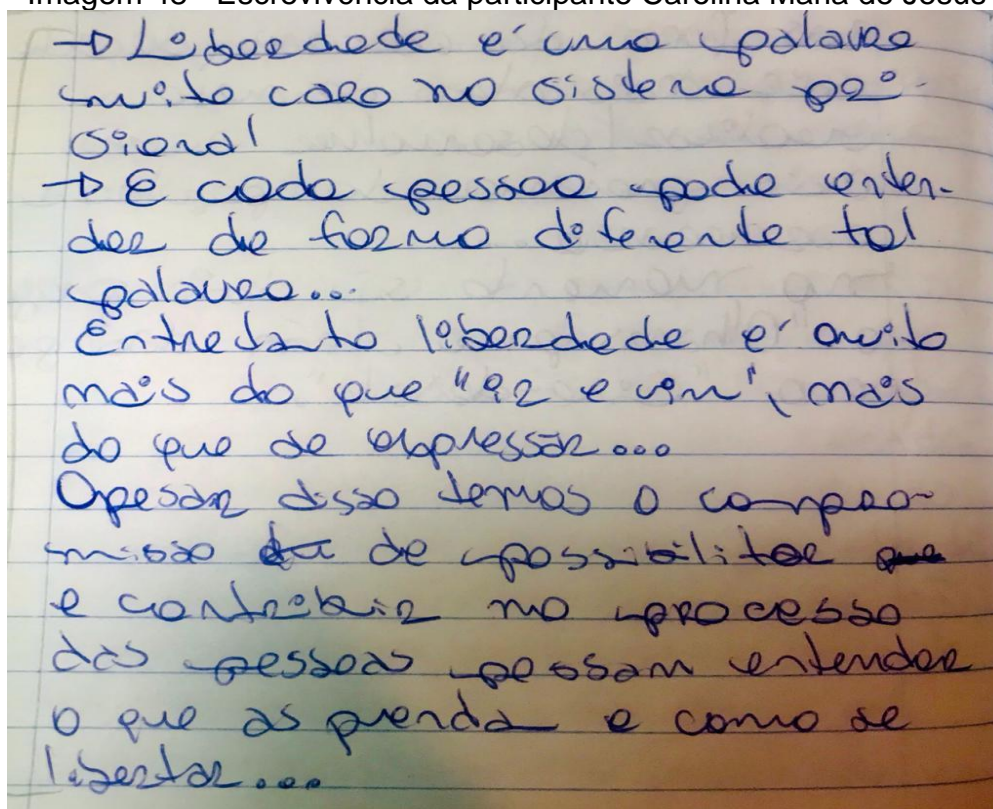 Imagem 48 - Escrevivência da participante Carolina Maria de Jesus
→ Liberdade é uma palavra
muito cara no sistema pri-
sional
→ E cada pessoa pode enten-
der de forma diferente tal
palavra...
Entretanto liberdade é muito
mais do que "ir e vim", mais
do que se expressar...
Apesar disso temos o compro-
misso de possibilitar
e contribuir no processo
das pessoas possam entender
o que as prenda e como se
libertar...